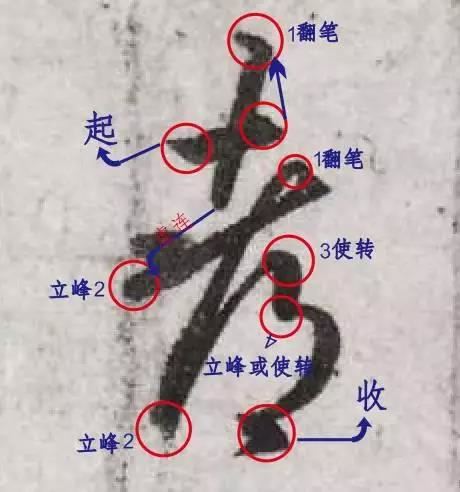 1翻笔
起
1翻笔
虚连
3使转
立峰2
立峰或使转
收
立峰2